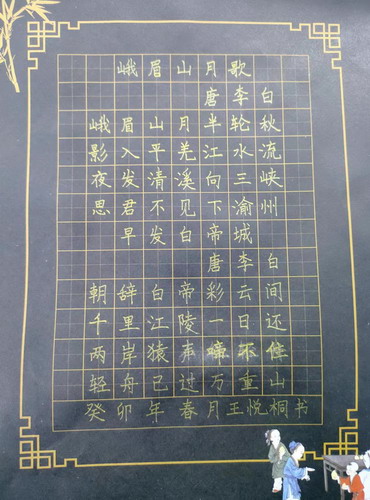 峨眉山月歌
唐李白
峨眉山月半轮秋
影入平羌江水流
夜发清溪向三峡
思君不见下渝州
早发白帝城
唐李白
朝辞白帝彩云间
千里江陵一日还
两岸猿声啼不住
轻舟已过万重山
癸卯年春月王悦桐书